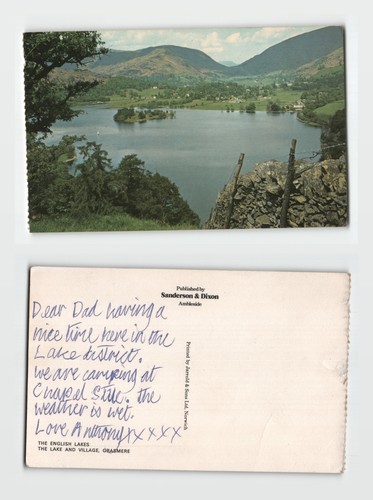 Published by
Sanderson & Dixon
Ambleside
Dear Dad having a
nice time here in the
Lake district.
we are camping at
Chapel Stile. the
weather is wet.
Love Anthony x x x x x
Printed by Jarrold & Sons Ltd, Norwich
THE ENGLISH LAKES
THE LAKE AND VILLAGE, GRASMERE